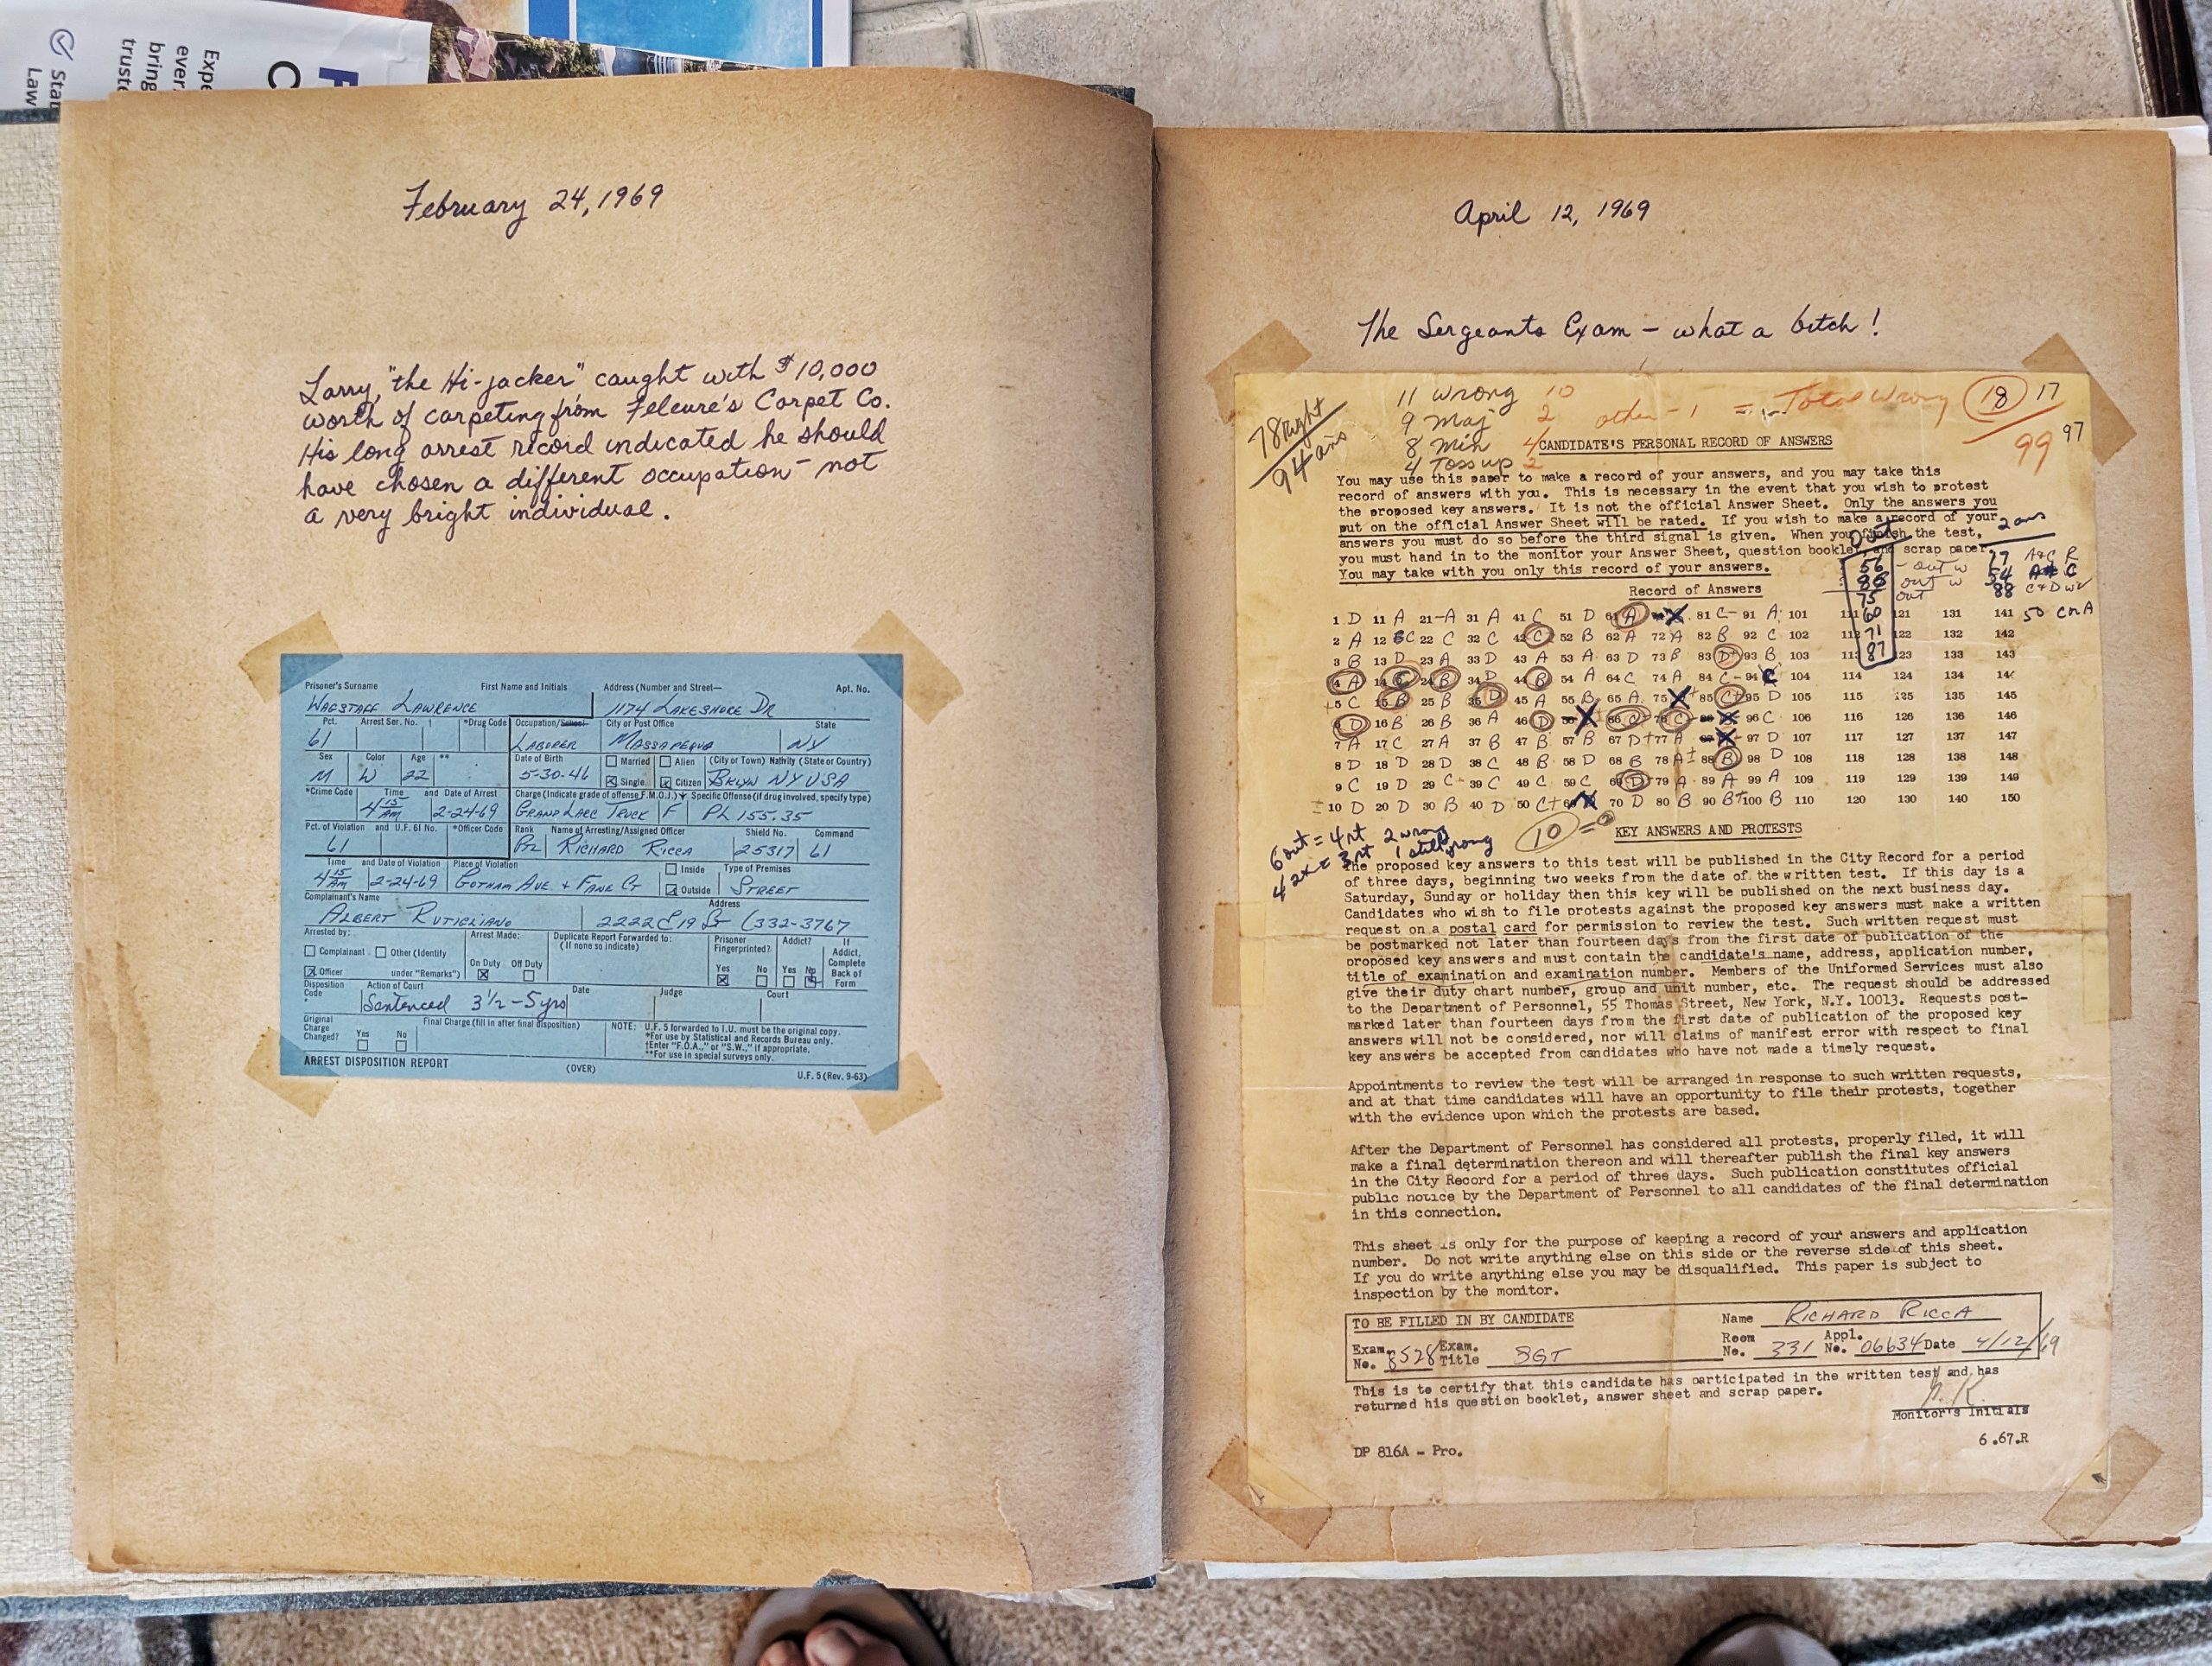 Expe
ever
bring
trust
Stat
Law
February 24, 1969
Larry, "the Hi-jacker" caught with $10,000
worth of carpeting from Feleure's Carpet Co.
His long arrest record indicated he should
have chosen a different occupation - not
a very bright individual.
Prisoner's Surname First Name and Initials Address (Number and Street— Apt. No.
WAGSTAFF LAWRENCE 1174 LAKESHORE DR
Pct. Arrest Ser. No. *Drug Code Occupation/School City or Post Office State
61 LABORER MASSAPEQUA NY
Sex Color Age ** Date of Birth Married Alien (City or Town) Nativity (State or Country)
M W 22 5-30-46 Single Citizen BKLYN NY USA
*Crime Code Time and Date of Arrest Charge (Indicate grade of offense F.M.O.I.) Specific Offense (if drug involved, specify type)
4 15 AM 2-24-69 GRAND LARC TRUCK F PL 155.35
Pct. of Violation and U.F. 61 No. *Officer Code Rank Name of Arresting/Assigned Officer Shield No. Command
61 Ptl RICHARD RICCA 25317 61
Time and Date of Violation Place of Violation Inside Type of Premises
4 15 AM 2-24-69 GOTHAM AVE. + FANE CT Outside STREET
Complainant's Name Address
ALBERT RUTIGLIANO 2222 E 19 St (332-3767
Arrested by: Arrest Made: Duplicate Report Forwarded to: Prisoner Addict? If
(If none so indicate) Fingerprinted? Addict,
Complainant Other (Identify On Duty Off Duty Yes No Yes No Complete
Officer under "Remarks") Back of
Form
Disposition Action of Court Date Judge Court
Code Sentenced 3½-5yrs
Original Final Charge (fill in after final disposition) NOTE: U.F. 5 forwarded to I.U. must be the original copy.
Charge Yes No *For use by Statistical and Records Bureau only.
Changed? †Enter "F.O.A.," or "S.W.," if appropriate.
**For use in special surveys only.
ARREST DISPOSITION REPORT (OVER) U.F. 5 (Rev. 9-63)
April 12, 1969
The Sergeants Exam - what a bitch!
78 Right
94 ans
11 wrong 10
9 Maj 2 other - 1 = Total Wrong 18 17
8 Min 4
4 Toss up 2
99 97
CANDIDATE'S PERSONAL RECORD OF ANSWERS
You may use this paper to make a record of your answers, and you may take this
record of answers with you. This is necessary in the event that you wish to protest
the proposed key answers. It is not the official Answer Sheet. Only the answers you
put on the official Answer Sheet will be rated. If you wish to make a record of your
answers you must do so before the third signal is given. When you finish the test,
you must hand in to the monitor your Answer Sheet, question booklet, and scrap paper.
You may take with you only this record of your answers.
out
56 - out w
88 out w
75 out
60
71
87
2 ans
77 A+C R
54 C
88 C+D w
50 C or A
Record of Answers
1 D 11 A 21 A 31 A 41 C 51 D 61 A 71 81 C 91 A 101 111 121 131 141
2 A 12 C 22 C 32 C 42 C 52 B 62 A 72 A 82 B 92 C 102 112 122 132 142
3 B 13 D 23 A 33 D 43 A 53 A 63 D 73 B 83 D 93 B 103 113 123 133 143
4 A 14 C 24 B 34 D 44 B 54 A 64 C 74 A 84 C 94 104 114 124 134 144
5 C 15 B 25 B 35 D 45 A 55 B 65 A 75 85 C 95 D 105 115 125 135 145
6 D 16 B 26 B 36 A 46 D 56 66 C 76 C 86 96 C 106 116 126 136 146
7 A 17 C 27 A 37 B 47 B 57 B 67 D 77 A 87 97 D 107 117 127 137 147
8 D 18 D 28 D 38 C 48 B 58 D 68 B 78 A 88 B 98 D 108 118 128 138 148
9 C 19 D 29 C 39 C 49 C 59 C 69 D 79 A 89 A 99 A 109 119 129 139 149
10 D 20 D 30 B 40 D 50 C 60 70 D 80 B 90 B 100 B 110 120 130 140 150
6 out = 4 rt 2 wrong
4 2x = 3 rt 1 still wrong
10 =
KEY ANSWERS AND PROTESTS
The proposed key answers to this test will be published in the City Record for a period
of three days, beginning two weeks from the date of the written test. If this day is a
Saturday, Sunday or holiday then this key will be published on the next business day.
Candidates who wish to file protests against the proposed key answers must make a written
request on a postal card for permission to review the test. Such written request must
be postmarked not later than fourteen days from the first date of publication of the
proposed key answers and must contain the candidate's name, address, application number,
title of examination and examination number. Members of the Uniformed Services must also
give their duty chart number, group and unit number, etc. The request should be addressed
to the Department of Personnel, 55 Thomas Street, New York, N.Y. 10013. Requests post-
marked later than fourteen days from the first date of publication of the proposed key
answers will not be considered, nor will claims of manifest error with respect to final
key answers be accepted from candidates who have not made a timely request.
Appointments to review the test will be arranged in response to such written requests,
and at that time candidates will have an opportunity to file their protests, together
with the evidence upon which the protests are based.
After the Department of Personnel has considered all protests, properly filed, it will
make a final determination thereon and will thereafter publish the final key answers
in the City Record for a period of three days. Such publication constitutes official
public notice by the Department of Personnel to all candidates of the final determination
in this connection.
This sheet is only for the purpose of keeping a record of your answers and application
number. Do not write anything else on this side or the reverse side of this sheet.
If you do write anything else you may be disqualified. This paper is subject to
inspection by the monitor.
TO BE FILLED IN BY CANDIDATE Name RICHARD RICCA
Exam. No. 8528 Exam. Title SGT Room No. 331 Appl. No. 06634 Date 4/12/69
This is to certify that this candidate has participated in the written test and has
returned his question booklet, answer sheet and scrap paper.
Monitor's Initials
6.67.R
DP 816A - Pro.